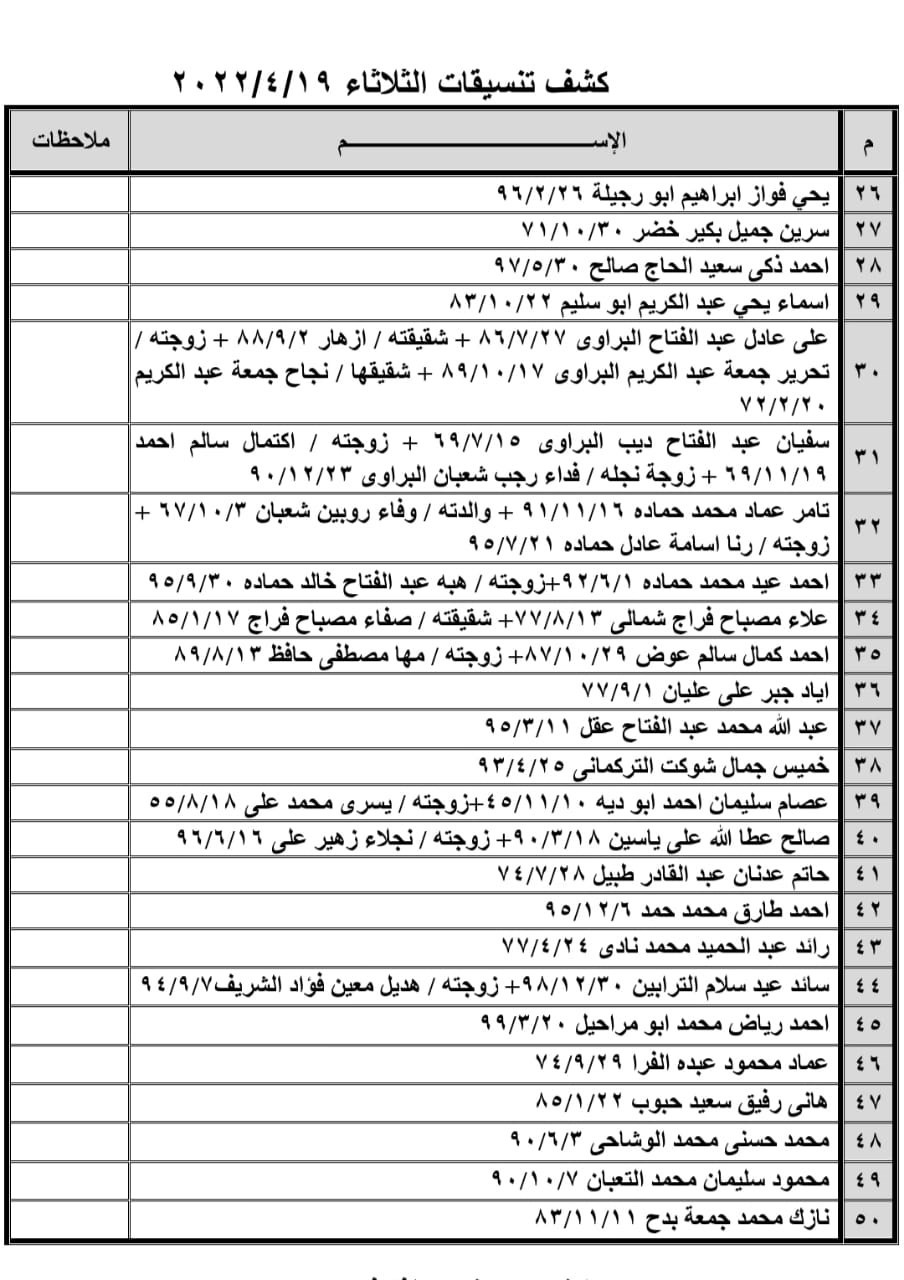 كشف تنسيقات الثلاثاء ٢٠٢٢/٤/١٩
م الإســـــــــــــــــــــم ملاحظات
٢٦ يحي فواز ابراهيم ابو رجيلة ٩٦/٢/٢٦
٢٧ سرين جميل بكير خضر ٧١/١٠/٣٠
٢٨ احمد ذكى سعيد الحاج صالح ٩٧/٥/٣٠
٢٩ اسماء يحي عبد الكريم ابو سليم ٨٣/١٠/٢٢
٣٠ على عادل عبد الفتاح البراوى ٨٦/٧/٢٧ + شقيقته / ازهار ٨٨/٩/٢ + زوجته /
تحرير جمعة عبد الكريم البراوى ٨٩/١٠/١٧ + شقيقها / نجاح جمعة عبد الكريم
٧٢/٢/٢٠
٣١ سفيان عبد الفتاح ديب البراوى ٦٩/٧/١٥ + زوجته / اكتمال سالم احمد
٦٩/١١/١٩ + زوجة نجله / فداء رجب شعبان البراوى ٩٠/١٢/٢٣
٣٢ تامر عماد محمد حماده ٩١/١١/١٦ + والدته / وفاء روبين شعبان ٦٧/١٠/٣ +
زوجته / رنا اسامة عادل حماده ٩٥/٧/٢١
٣٣ احمد عيد محمد حماده ٩٢/٦/١+زوجته / هبه عبد الفتاح خالد حماده ٩٥/٩/٣٠
٣٤ علاء مصباح فراج شمالى ٧٧/٨/١٣+ شقيقته / صفاء مصباح فراج ٨٥/١/١٧
٣٥ احمد كمال سالم عوض ٨٧/١٠/٢٩+ زوجته / مها مصطفى حافظ ٨٩/٨/١٣
٣٦ اياد جبر على عليان ٧٧/٩/١
٣٧ عبد الله محمد عبد الفتاح عقل ٩٥/٣/١١
٣٨ خميس جمال شوكت التركمانى ٩٣/٤/٢٥
٣٩ عصام سليمان احمد ابو ديه ٤٥/١١/١٠+زوجته / يسرى محمد على ٥٥/٨/١٨
٤٠ صالح عطا الله على ياسين ٩٠/٣/١٨+ زوجته / نجلاء زهير على ٩٦/٦/١٦
٤١ حاتم عدنان عبد القادر طبيل ٧٤/٧/٢٨
٤٢ احمد طارق محمد حمد ٩٥/١٢/٦
٤٣ رائد عبد الحميد محمد نادى ٧٧/٤/٢٤
٤٤ سائد عيد سلام الترابين ٩٨/١٢/٣٠+ زوجته / هديل معين فؤاد الشريف٩٤/٩/٧
٤٥ احمد رياض محمد ابو مراحيل ٩٩/٣/٢٠
٤٦ عماد محمود عبده الفرا ٧٤/٩/٢٩
٤٧ هانى رفيق سعيد حبوب ٨٥/١/٢٢
٤٨ محمد حسنى محمد الوشاحى ٩٠/٦/٣
٤٩ محمود سليمان محمد التعبان ٩٠/١٠/٧
٥٠ نازك محمد جمعة بدح ٨٣/١١/١١